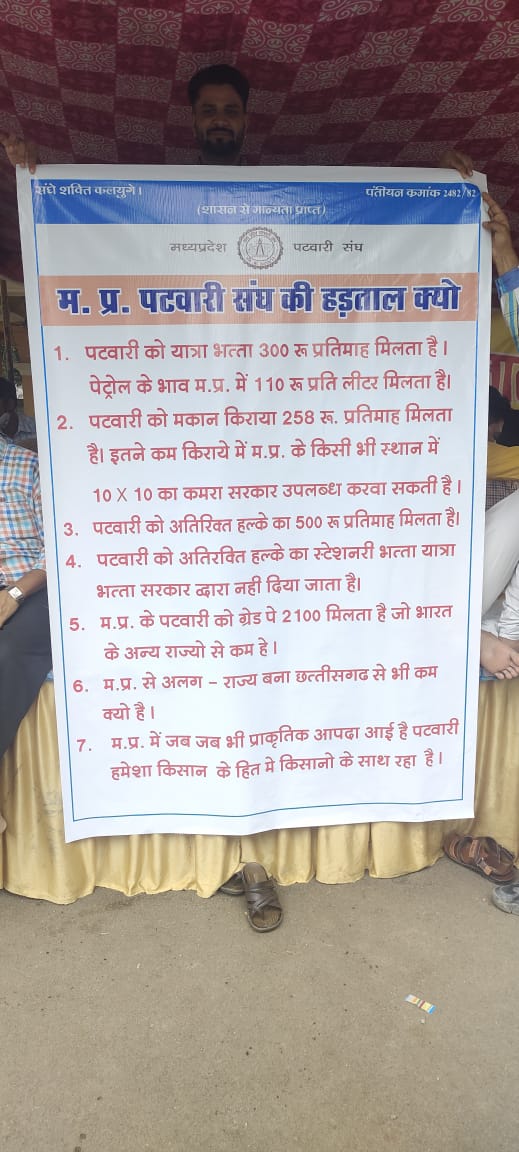 संघे शक्ति कलयुगे।
पंतीयन क्रमांक 2482/82
(शासन से मान्यता प्राप्त)
मध्यप्रदेश पटवारी संघ
म. प्र. पटवारी संघ की हड़ताल क्यो
1. पटवारी को यात्रा भत्ता 300 रू प्रतिमाह मिलता है।
पेट्रोल के भाव म.प्र. में 110 रू प्रति लीटर मिलता है।
2. पटवारी को मकान किराया 258 रू. प्रतिमाह मिलता
है। इतने कम किराये में म.प्र. के किसी भी स्थान में
10 X 10 का कमरा सरकार उपलब्ध करवा सकती है।
3. पटवारी को अतिरिक्त हल्के का 500 रू प्रतिमाह मिलता है।
4. पटवारी को अतिरवित हल्के का स्टेशनरी भत्ता यात्रा
भत्ता सरकार द्वारा नही दिया जाता है।
5. म.प्र. के पटवारी को ग्रेड पे 2100 मिलता है जो भारत
के अन्य राज्यो से कम हे।
6. म.प्र. से अलग – राज्य बना छत्तीसगढ से भी कम
क्यो है।
7. म.प्र. में जब जब भी प्राकृतिक आपदा आई है पटवारी
हमेशा किसान के हित मे किसानो के साथ रहा है।